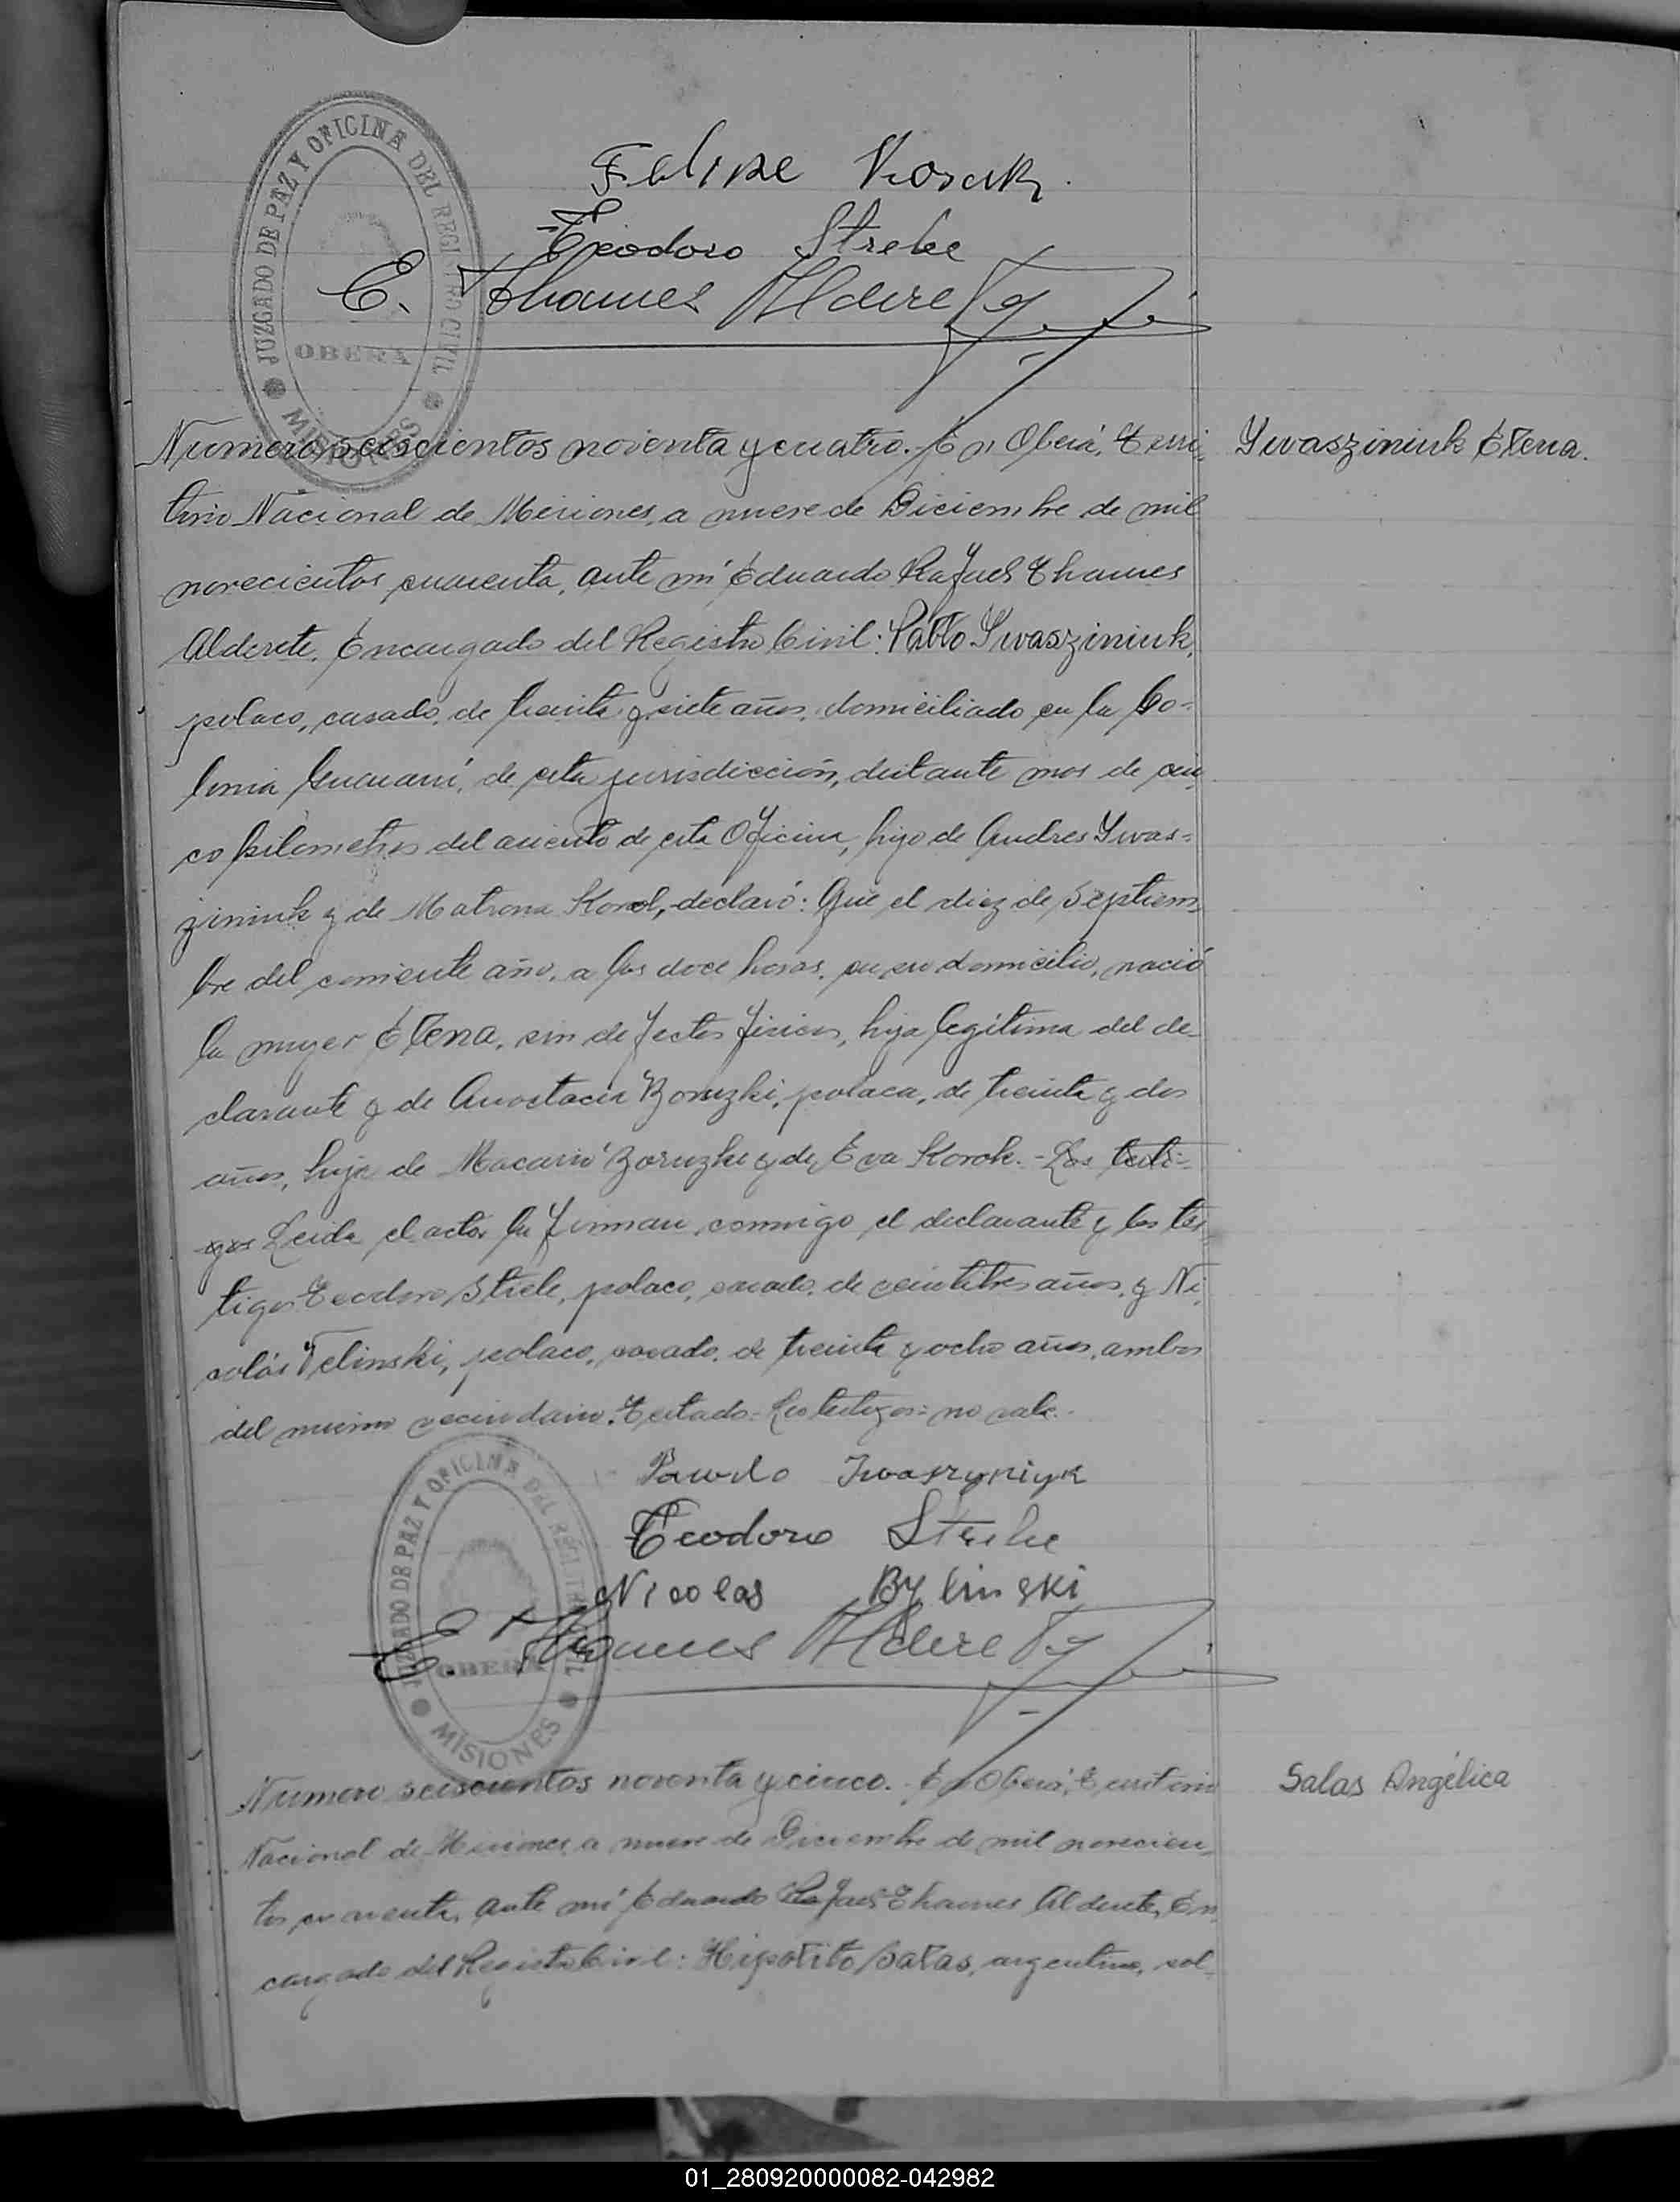 JUZGADO DE PAZ Y OFICINA DEL REGISTRO CIVIL
OBERA
MISIONES
Felipe
Teodoro Strele
E. Thames Alderete
Numero seiscientos noventa y cuatro. En Oberá, Terri-
Ywasziniuk Elena.
torio Nacional de Misiones, a nueve de Diciembre de mil
novecientos cuarenta, ante mí Eduardo Rafael Thames
Alderete, Encargado del Registro Civil: Pablo Ywasziniuk,
polaco, casado, de treinta y siete años, domiciliado en la Co-
lonia Guaraní, de esta jurisdicción, distante mas de cin-
co kilometros del asiento de esta Oficina, hijo de Andres Ywas-
ziniuk y de Matrona Korol, declaró: Que el diez de Septiem-
bre del corriente año, a las doce horas, en su domicilio, nació
la mujer Elena, sin defectos fisicos, hija legítima del de-
clarante y de Anastacia Boruzki, polaca, de treinta y dos
años, hija de Macario Boruzki y de Eva Korok. - Los testi-
gos Leida el acta, la firman conmigo el declarante y los tes-
tigos Teodoro Strele, polaco, casado, de veintitres años, y Ni-
colás Velinski, polaco, casado, de treinta y ocho años, ambos
del mismo vecindario. Testado: Los testigos: no vale.
JUZGADO DE PAZ Y OFICINA DEL REGISTRO CIVIL
OBERA
MISIONES
Pawlo Iwaszyniyk
Teodoro Strele
Nicolas Bylinski
E. Thames Alderete
Numero seiscientos noventa y cinco. En Oberá, Territorio
Salas Angélica
Nacional de Misiones, a nueve de Diciembre de mil novecien-
tos cuarenta, ante mí Eduardo Rafael Thames Alderete, En-
cargado del Registro Civil: Hipolito Salas, argentino, sol-
01_280920000082-042982